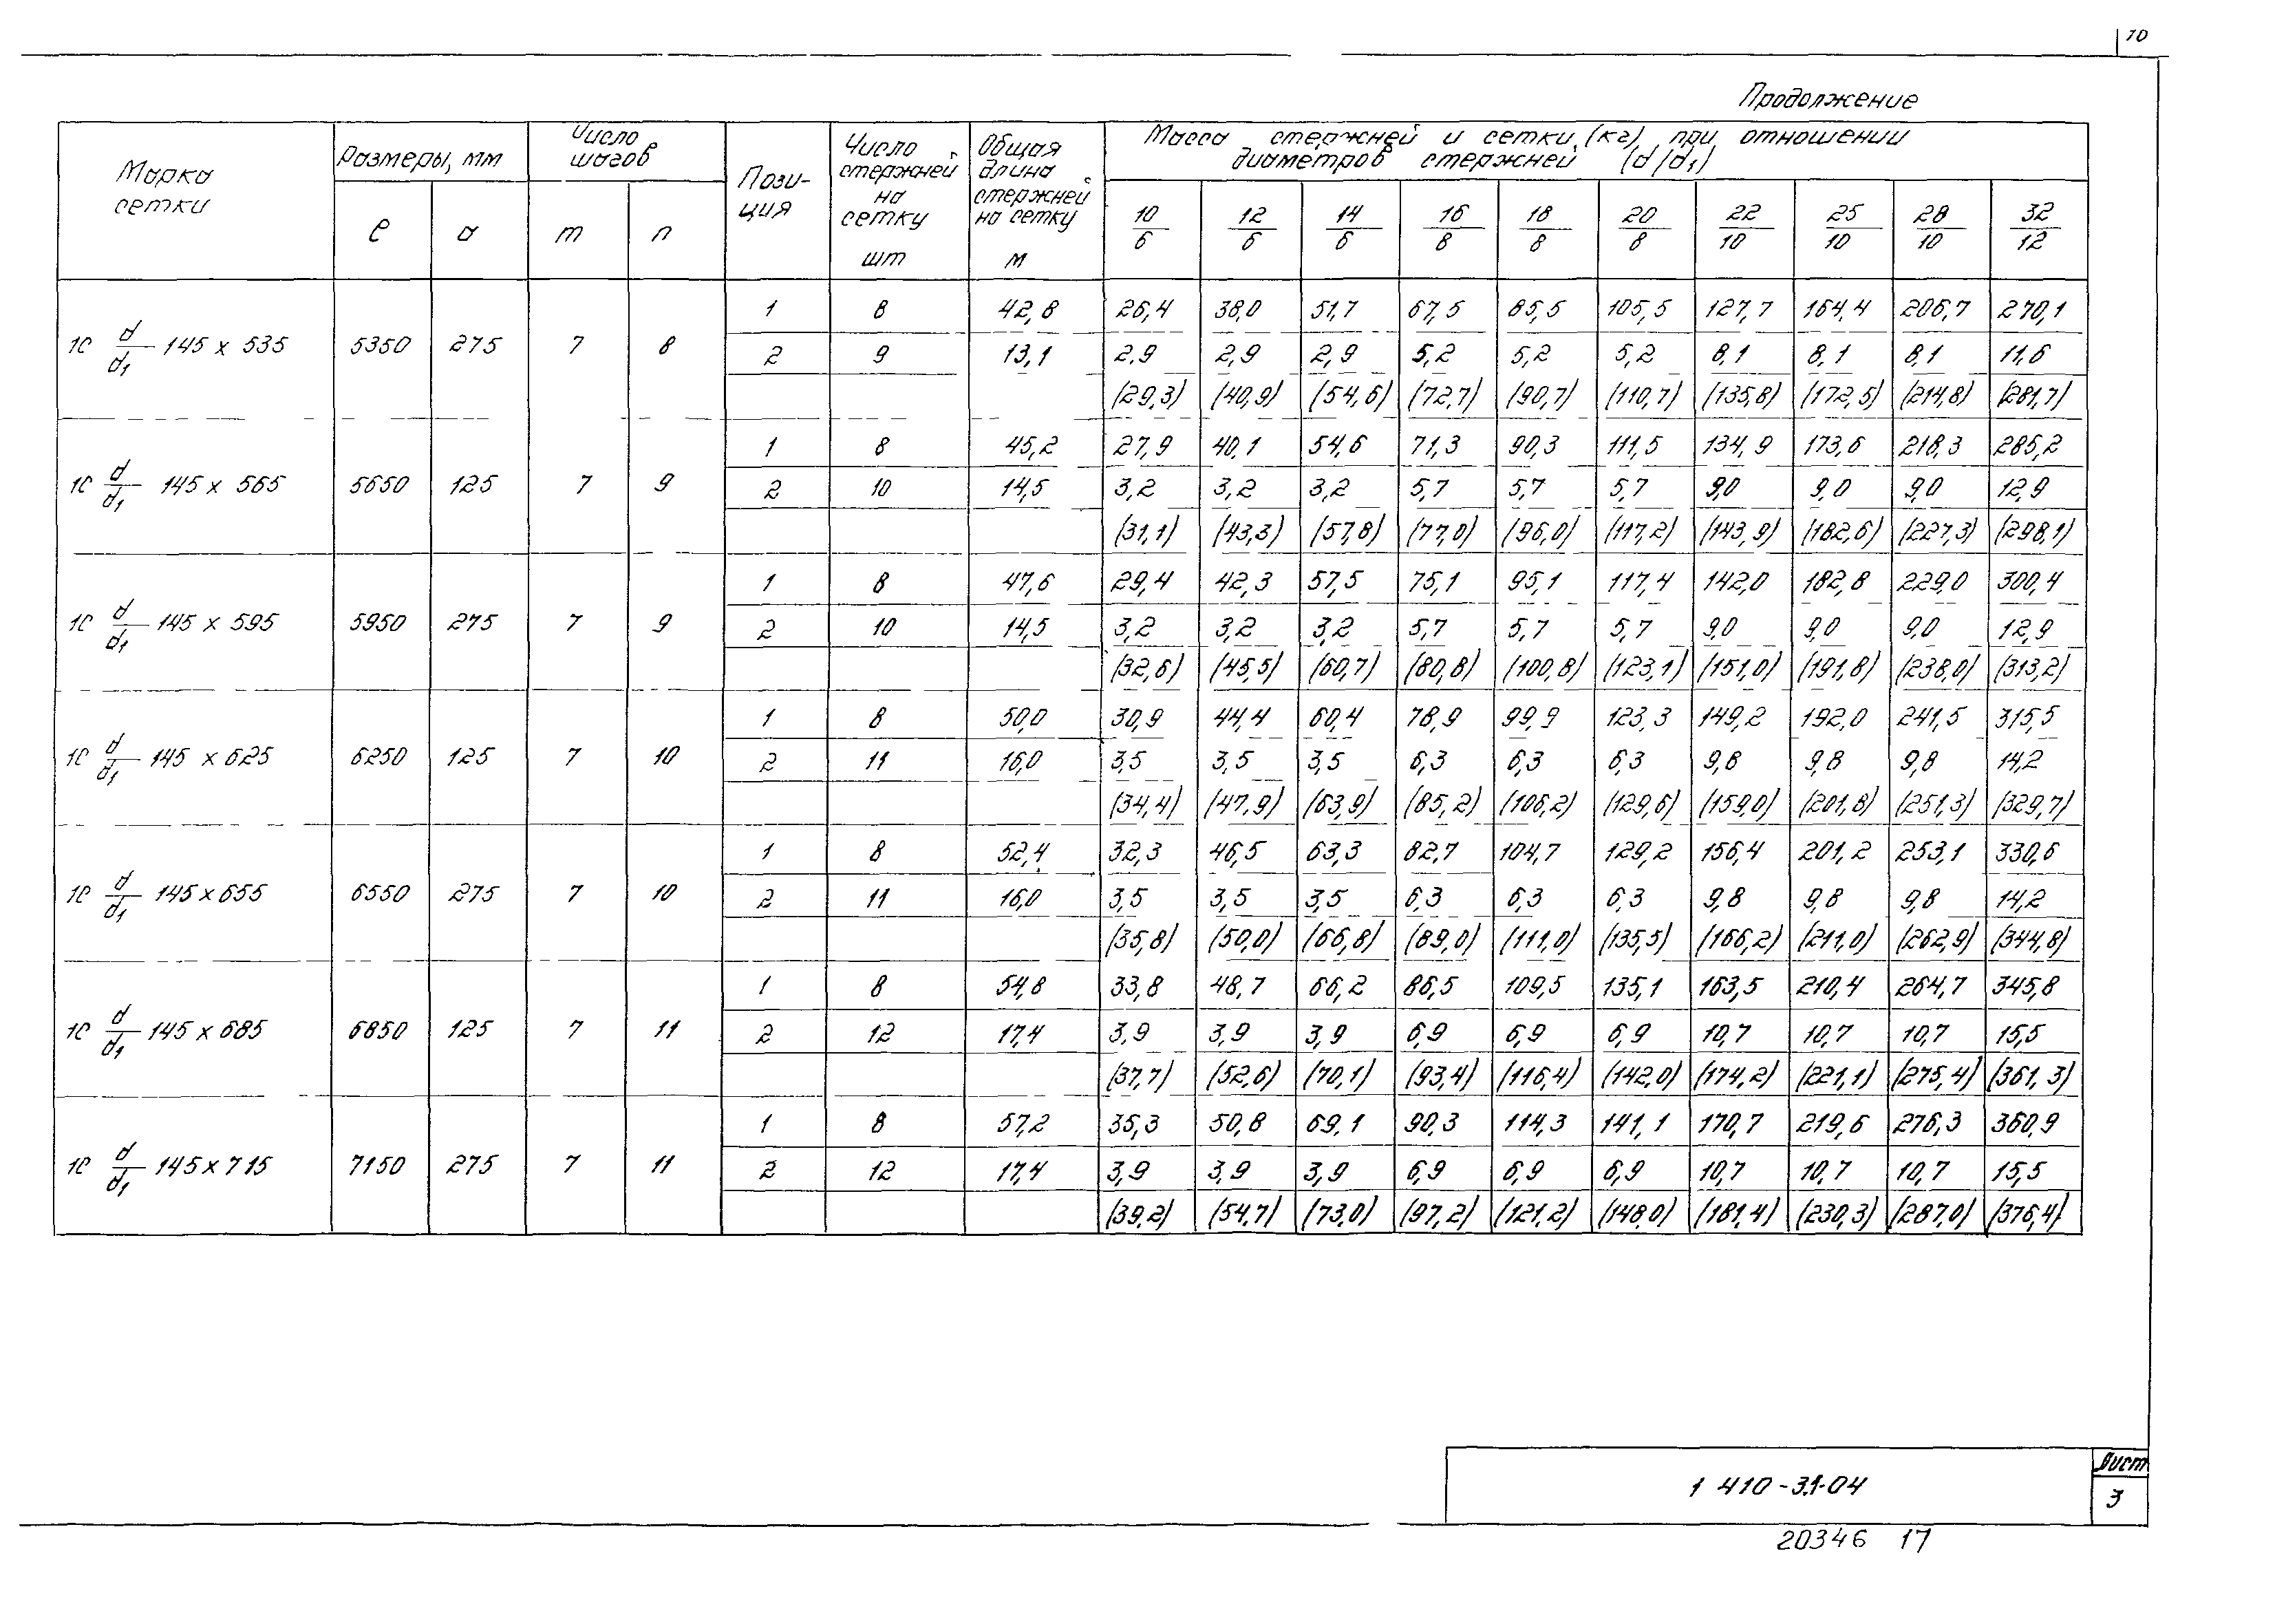 10
Продолжение
Марка сетки | Размеры, мм | Число шагов | Позиция | Число стержней на сетку шт | Общая длина стержней на сетку м | Масса стержней и сетки (кг) при отношении диаметров стержней (d/d1)
ℓ | a | m | n | 10/6 | 12/6 | 14/6 | 16/8 | 18/8 | 20/8 | 22/10 | 25/10 | 28/10 | 32/12
1 | 8 | 42,8 | 26,4 | 38,0 | 51,7 | 67,5 | 85,5 | 105,5 | 127,7 | 164,4 | 206,7 | 270,1
1С d/d1 145 x 535 | 5350 | 275 | 7 | 8 | 2 | 9 | 13,1 | 2,9 | 2,9 | 2,9 | 5,2 | 5,2 | 5,2 | 8,1 | 8,1 | 8,1 | 11,6
(29,3) | (40,9) | (54,6) | (72,7) | (90,7) | (110,7) | (135,8) | (172,5) | (214,8) | (281,7)
1 | 8 | 45,2 | 27,9 | 40,1 | 54,6 | 71,3 | 90,3 | 111,5 | 134,9 | 173,6 | 218,3 | 285,2
1С d/d1 145 x 565 | 5650 | 125 | 7 | 9 | 2 | 10 | 14,5 | 3,2 | 3,2 | 3,2 | 5,7 | 5,7 | 5,7 | 9,0 | 9,0 | 9,0 | 12,9
(31,1) | (43,3) | (57,8) | (77,0) | (96,0) | (117,2) | (143,9) | (182,6) | (227,3) | (298,1)
1 | 8 | 47,6 | 29,4 | 42,3 | 57,5 | 75,1 | 95,1 | 117,4 | 142,0 | 182,8 | 229,0 | 300,4
1С d/d1 145 x 595 | 5950 | 275 | 7 | 9 | 2 | 10 | 14,5 | 3,2 | 3,2 | 3,2 | 5,7 | 5,7 | 5,7 | 9,0 | 9,0 | 9,0 | 12,9
(32,6) | (45,5) | (60,7) | (80,8) | (100,8) | (123,1) | (151,0) | (191,8) | (238,0) | (313,2)
1 | 8 | 50,0 | 30,9 | 44,4 | 60,4 | 78,9 | 99,9 | 123,3 | 149,2 | 192,0 | 241,5 | 315,5
1С d/d1 145 x 625 | 6250 | 125 | 7 | 10 | 2 | 11 | 16,0 | 3,5 | 3,5 | 3,5 | 6,3 | 6,3 | 6,3 | 9,8 | 9,8 | 9,8 | 14,2
(34,4) | (47,9) | (63,9) | (85,2) | (106,2) | (129,6) | (159,0) | (201,8) | (251,3) | (329,7)
1 | 8 | 52,4 | 32,3 | 46,5 | 63,3 | 82,7 | 104,7 | 129,2 | 156,4 | 201,2 | 253,1 | 330,6
1С d/d1 145 x 655 | 6550 | 275 | 7 | 10 | 2 | 11 | 16,0 | 3,5 | 3,5 | 3,5 | 6,3 | 6,3 | 6,3 | 9,8 | 9,8 | 9,8 | 14,2
(35,8) | (50,0) | (66,8) | (89,0) | (111,0) | (135,5) | (166,2) | (211,0) | (262,9) | (344,8)
1 | 8 | 54,8 | 33,8 | 48,7 | 66,2 | 86,5 | 109,5 | 135,1 | 163,5 | 210,4 | 264,7 | 345,8
1С d/d1 145 x 685 | 6850 | 125 | 7 | 11 | 2 | 12 | 17,4 | 3,9 | 3,9 | 3,9 | 6,9 | 6,9 | 6,9 | 10,7 | 10,7 | 10,7 | 15,5
(37,7) | (52,6) | (70,1) | (93,4) | (116,4) | (142,0) | (174,2) | (221,1) | (275,4) | (361,3)
1 | 8 | 57,2 | 35,3 | 50,8 | 69,1 | 90,3 | 114,3 | 141,1 | 170,7 | 219,6 | 276,3 | 360,9
1С d/d1 145 x 715 | 7150 | 275 | 7 | 11 | 2 | 12 | 17,4 | 3,9 | 3,9 | 3,9 | 6,9 | 6,9 | 6,9 | 10,7 | 10,7 | 10,7 | 15,5
(39,2) | (54,7) | (73,0) | (97,2) | (121,2) | (148,0) | (181,4) | (230,3) | (287,0) | (376,4)
1 410-3.1-04
Лист
3
20346 17